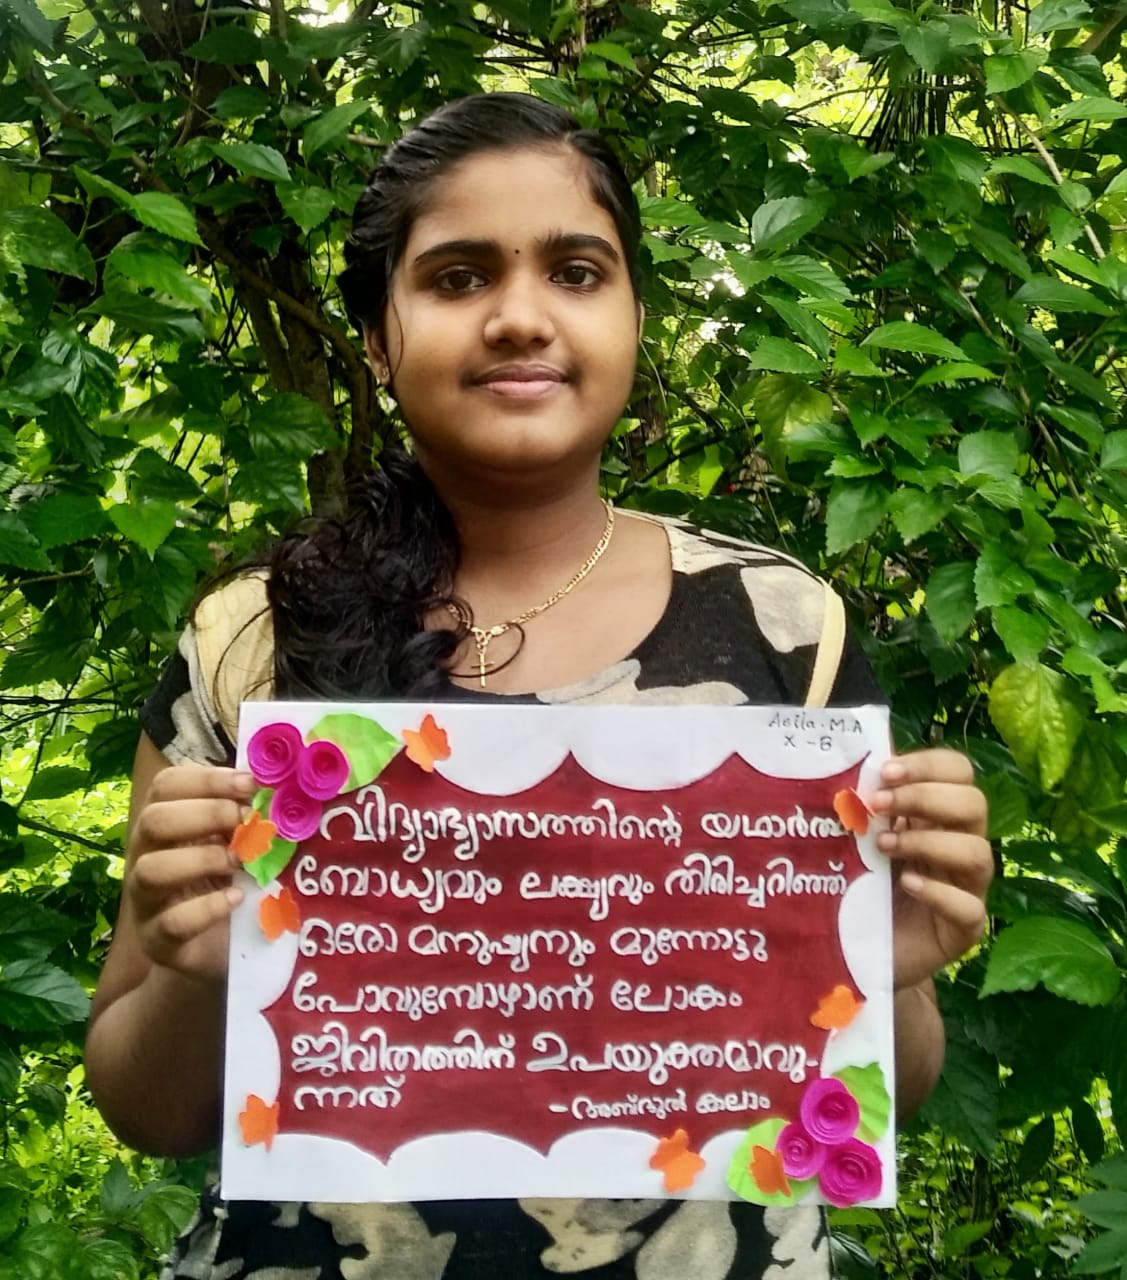 Asila. M.A
X - B
വിദ്യാഭ്യാസത്തിന്റെ യഥാർത്ഥ
ബോധ്യവും ലക്ഷ്യവും തിരിച്ചറിഞ്ഞ്
ഒരോ മനുഷ്യനും മുന്നോട്ടു
പോവുമ്പോഴാണ് ലോകം
ജീവിതത്തിന് ഉപയുക്തമാവു-
ന്നത്
- അബ്ദുൽ കലാം